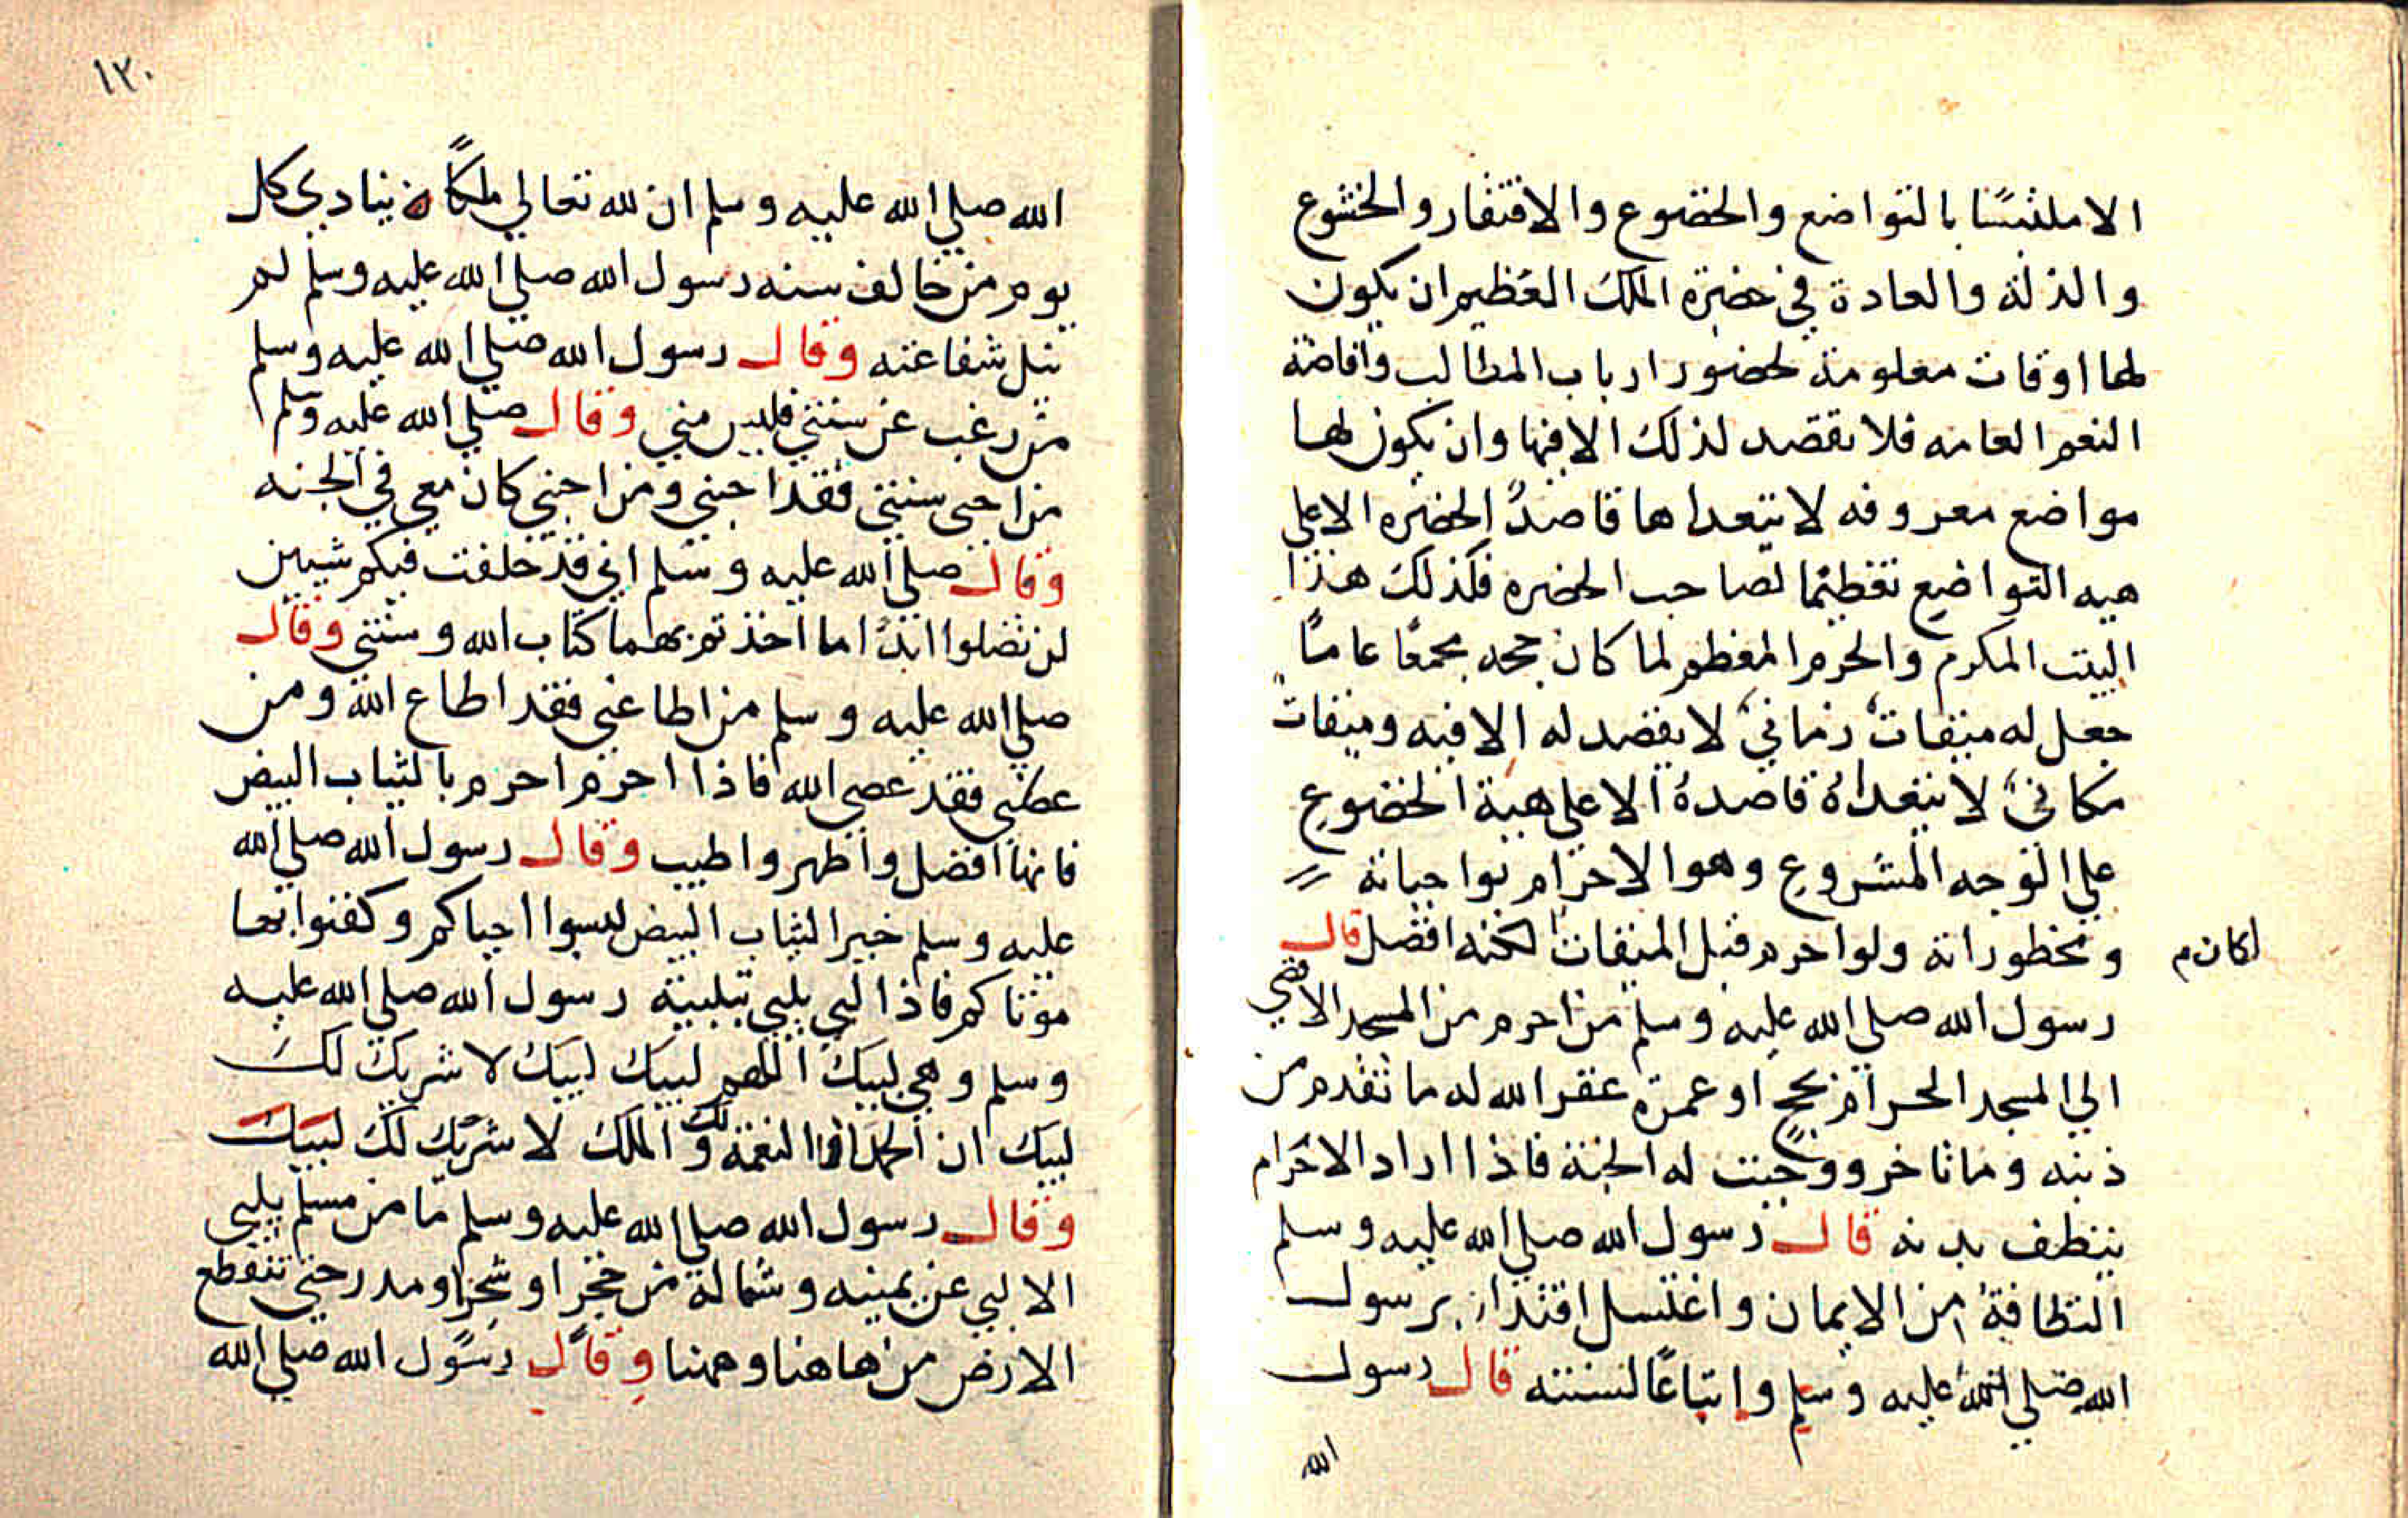 الا ملتبسًا بالتواضع والخضوع والافتقار والخشوع
والذلة والعادة في حضرة الملك العظيم ان يكون
لها اوقات معلومة لحضور ارباب المطالب وافاضة
النعم العامه فلا يقصد لذلك الا فيها وان يكون لها
مواضع معروفه لا يتعداها قاصدُ الحضره الا علي
هيه التواضع تعظيما لصاحب الحضره فكذلك هذا
البيت المكرم والحرم المعظم لما كان حجه مجمعًا عامًا
جعل له ميقات زماني لا يقصد له الا فيه وميقات
مكاني لا يتعداه قاصده الا علي هية الخضوع
علي الوجه المشروع وهو الاحرام بواجباته
ومحظوراته ولو احرم قبل الميقات لكنه افضل قال
لكان م
رسول الله صلي الله عليه وسلم من احرم من المسجد الاقصي
الي المسجد الحرام بحج او عمرة غفر الله له ما تقدم من
ذنبه وما تاخر ووجبت له الجنة فاذا اراد الاحرام
ينظف بدنه قال رسول الله صلي الله عليه وسلم
النظافة من الايمان واغتسل اقتداء برسول
الله صلي الله عليه وسلم واتباعًا لسنته قال رسول
الله
١٣٠
الله صلي الله عليه وسلم ان لله تعالي ملكًا ينادي كل
يوم من خالف سنه رسول الله صلي الله عليه وسلم لم
ينل شفاعته وقال رسول الله صلي الله عليه وسلم
من رغب عن سنتي فليس مني وقال صلي الله عليه وسلم
من احيى سنتي فقد احبني ومن احبني كان معي في الجنه
وقال صلي الله عليه وسلم اني قد خلفت فيكم شيين
لن تضلوا ابدًا ما اخذتم بهما كتاب الله وسنتي وقال
صلي الله عليه وسلم من اطاعني فقد اطاع الله ومن
عصاني فقد عصي الله فاذا احرم احرم بالثياب البيض
فانها افضل واطهر واطيب وقال رسول الله صلي الله
عليه وسلم خير الثياب البيض لبسوا احياكم وكفنوا بها
موتاكم فاذا لبي يلبي بتلبية رسول الله صلي الله عليه
وسلم وهي لبيك اللهم لبيك لبيك لا شريك لك
لبيك ان الحمد والنعمة لك والملك لا شريك لك لبيك
وقال رسول الله صلي الله عليه وسلم ما من مسلم يلبي
الا لبي عن يمينه وشماله من حجر او شجر او مدر حتي تنقطع
الارض من هاهنا وههنا وقال رسول الله صلي الله